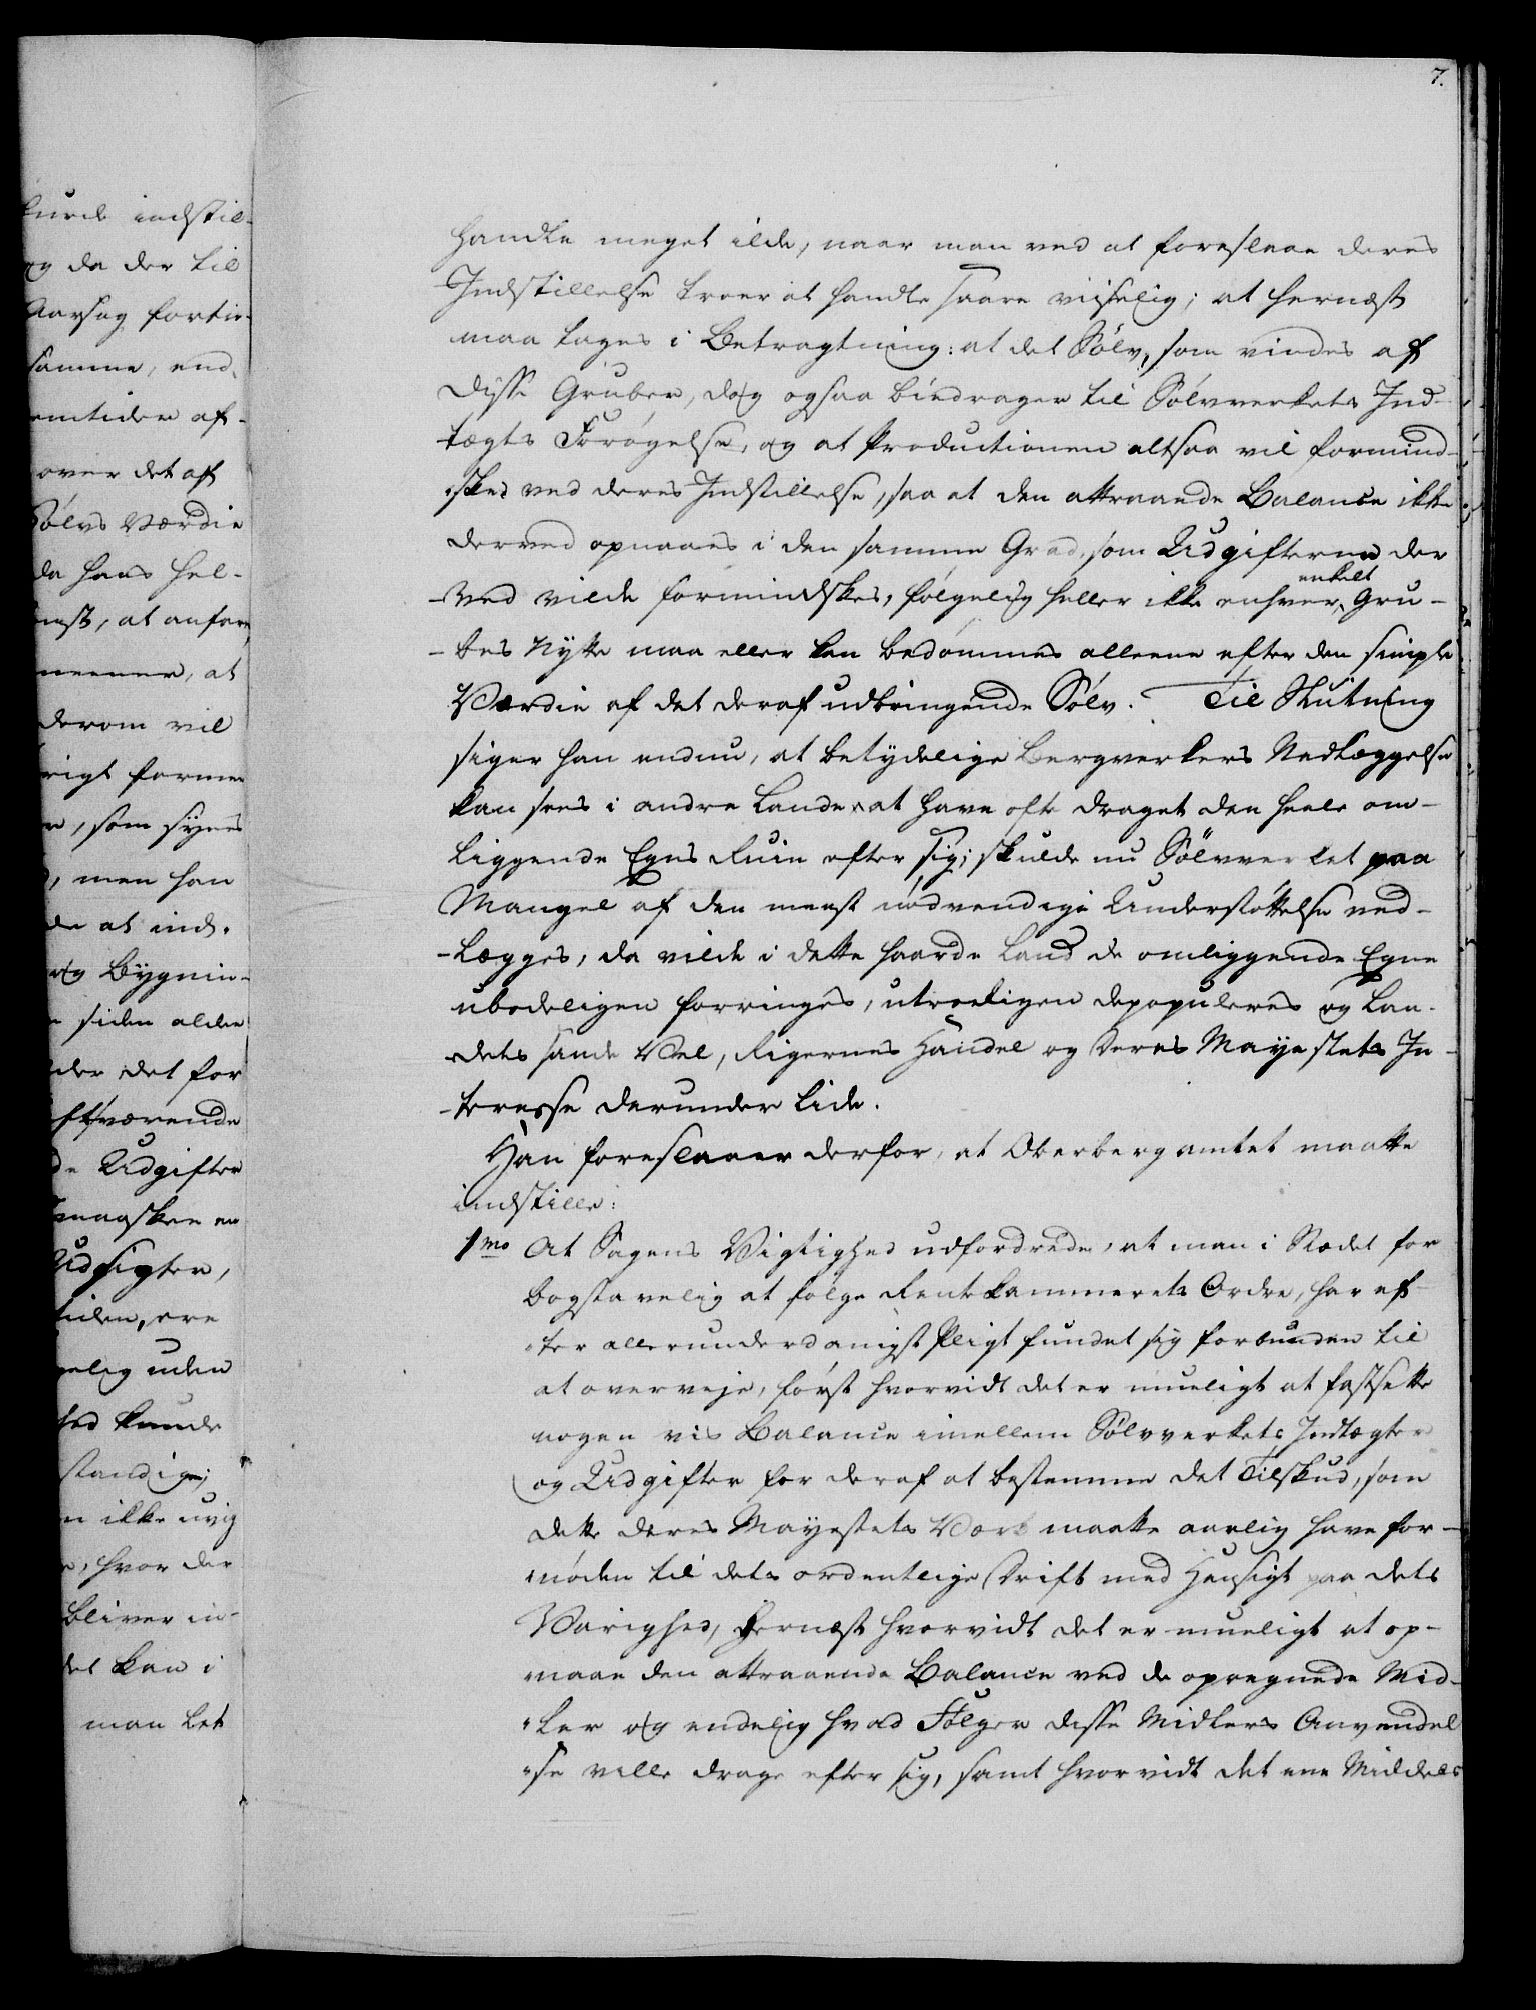 7.
handle meget ilde, naar man ved at foreslaae deres
Indstillelse troer at handle saare viiselig; at hernæst
maa tages i Betragtning: at det Sölv, som vindes af
disse Gruber, dog ogsaa bidrager til Sölvverkets Ind-
tægts Forøgelse, og at Productionen altsaa vil formind-
skes ved deres Indstillelse, saa at den attraaede Balance ikke
derved opnaaes i den samme Grad, som Udgifterne der
-ved vilde formindskes, følgelig heller ikke enhver enkelt Gru-
-bes Nytte maa eller kan bedømmes alleene efter den simple
Værdie af det deraf udbringende Sölv. Til Slutning
siger han endnu, at betydelige Bergverkers Nedlæggelse
kan sees i andre Lande at have ofte draget den heele om-
liggende Egns Ruin efter sig; skulde nu Sölvverket paa
Mangel af den meest nödvendige Understøttelse ned-
-lægges, da vilde i dette haarde Land de omliggende Egne
ubodeligen forringes, utroeligen depopuleres og Lan-
dets sande Vel, Rigernes Handel og Deres Mayestets In-
-teresse derunder lide.
Han foreslaaer derfor, at Oberbergamtet maatte
indstille:
1mo At Sagens Vigtighed udfordrede, at man i Stedet for
bogstavelig at følge Rentekammerets Ordre, har ef-
ter allerunderdanigst Pligt fundet sig forbunden til
at overveje, først hvorvidt det er mueligt at fastsette
nogen vis Balance imellem Sölvverkets Indtægter
og Udgifter for deraf at bestemme det Tilskud, som
dette Deres Mayestets Verk maatte aarlig have for-
nöden til dets ordentlige Drift med Hensigt paa dets
Varighed, hernæst hvorvidt det er mueligt at op-
naae den attraaende Balance ved de opregnede Mid-
ler og endelig hvad Følger disse Midlers Anvendel
se ville drage efter sig, samt hvorvidt det ene Middels